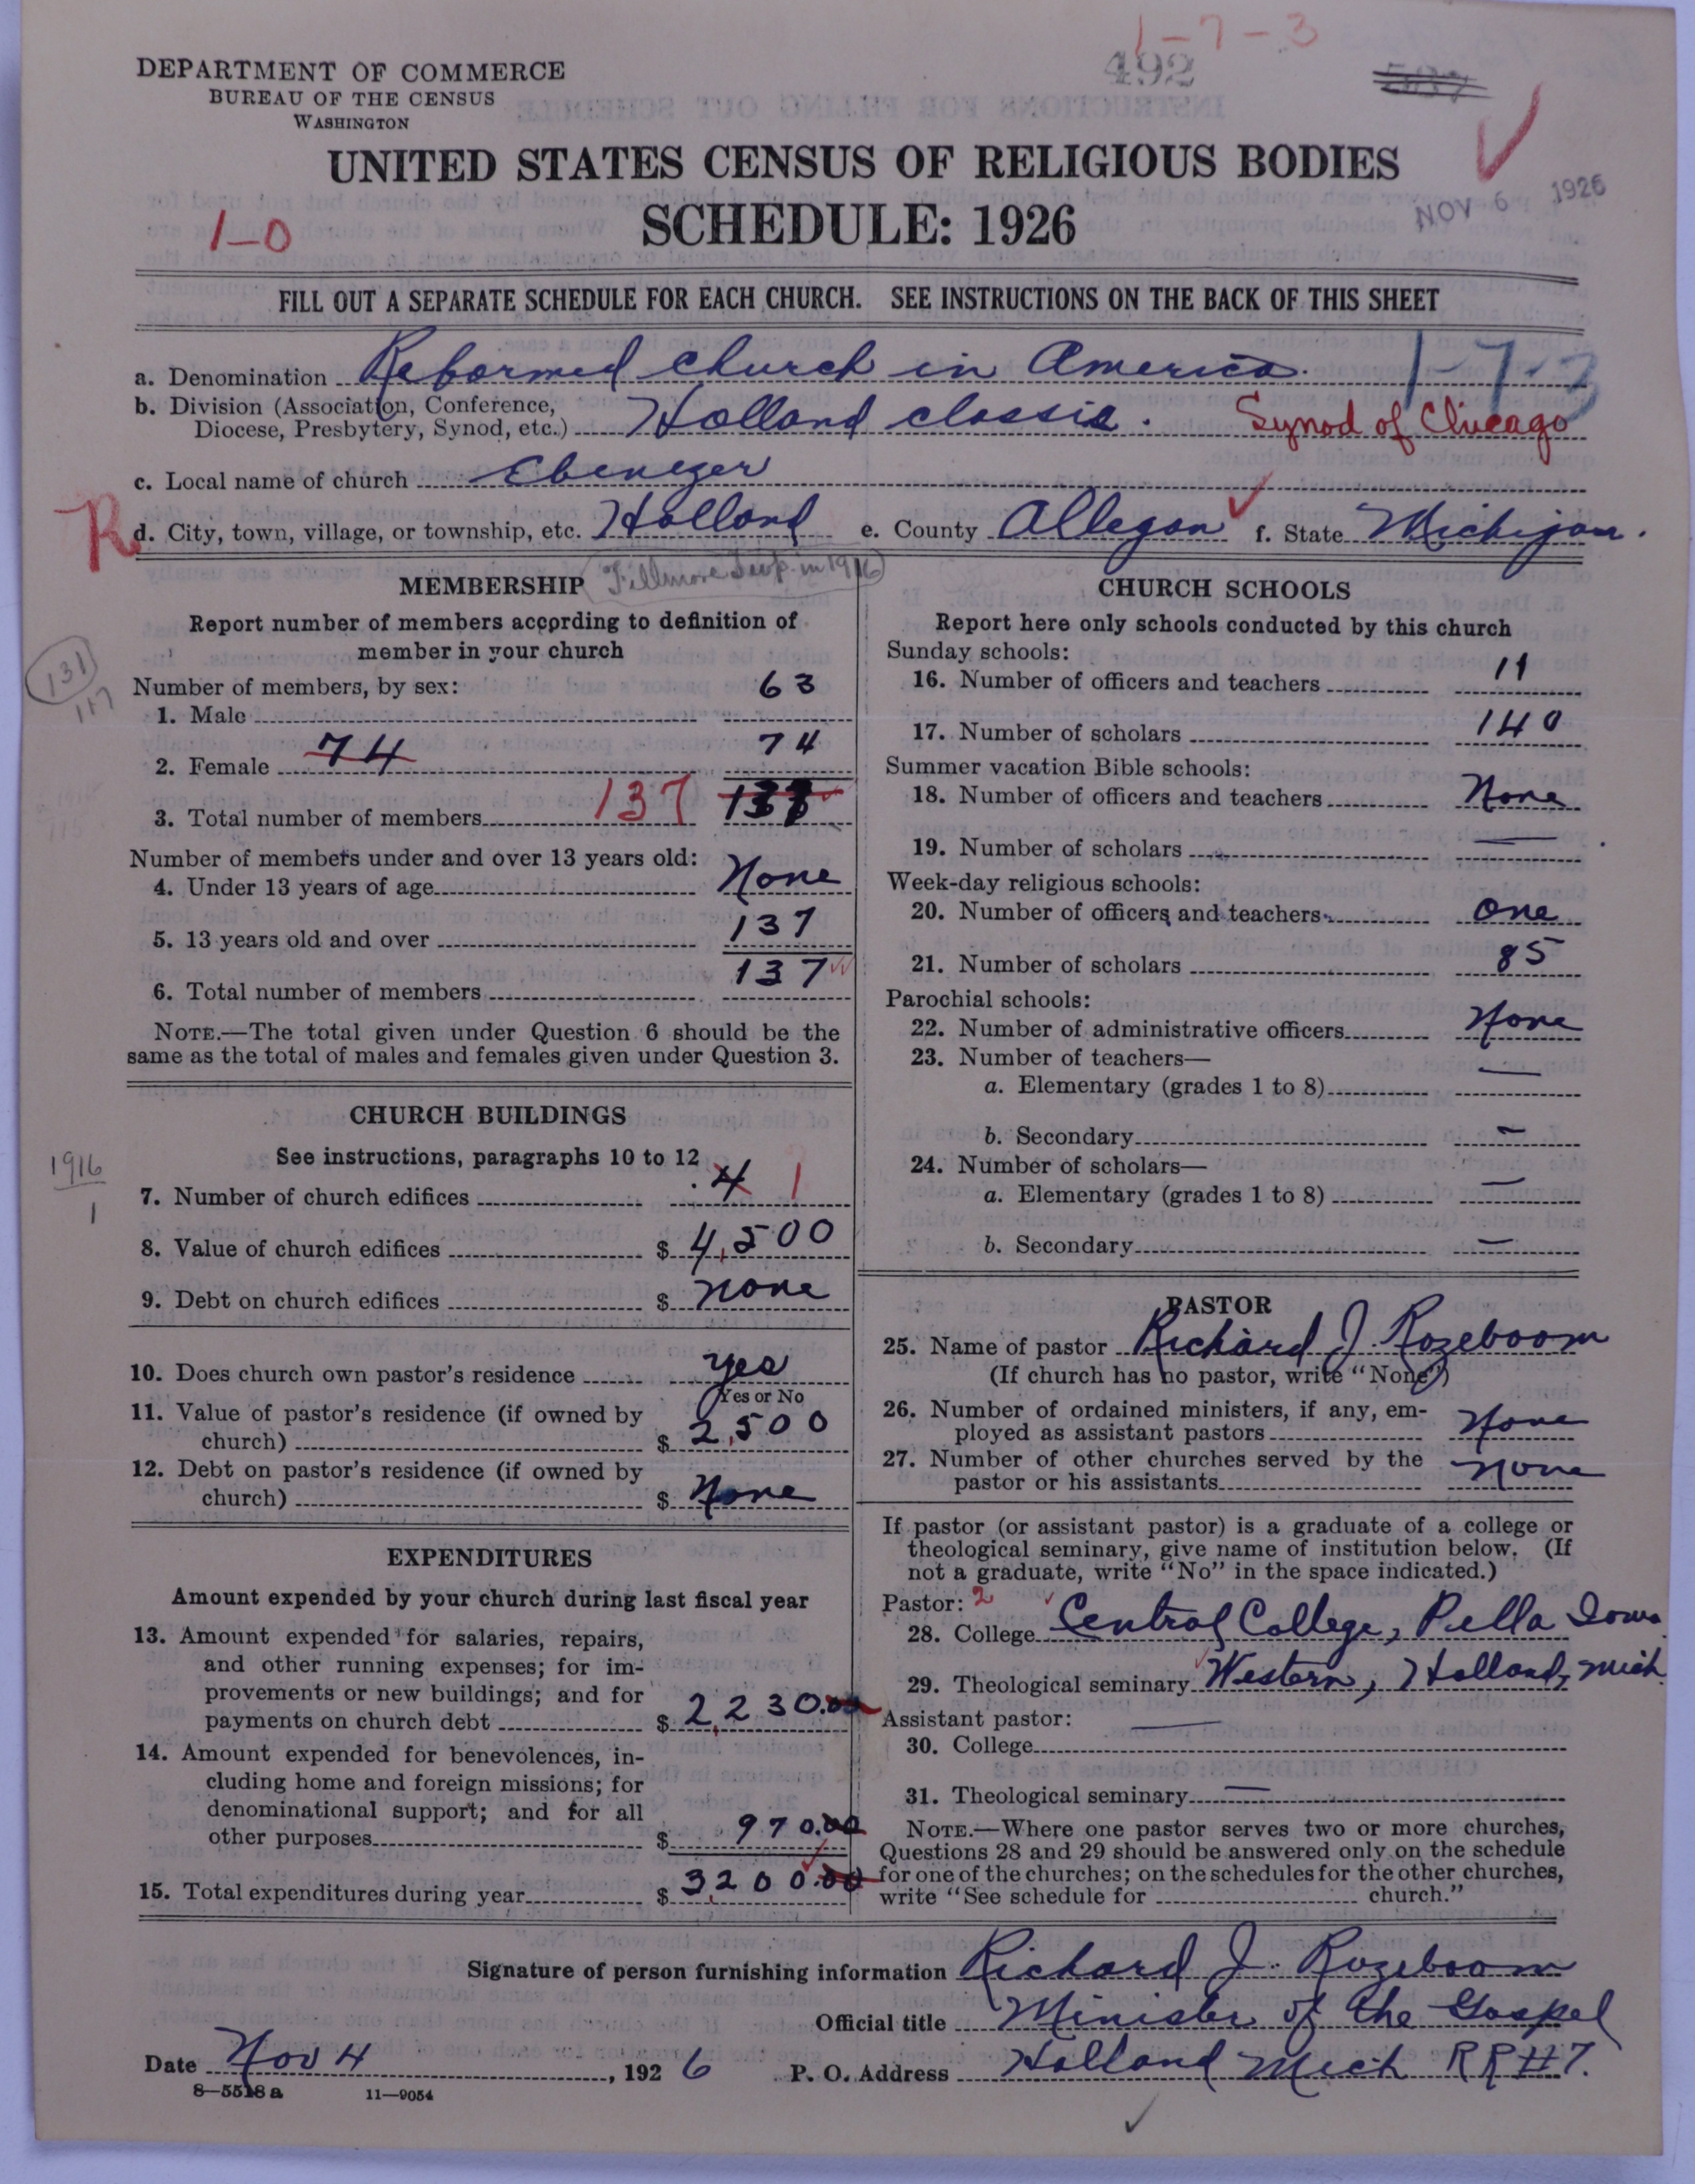 1-7-3
DEPARTMENT OF COMMERCE
BUREAU OF THE CENSUS
WASHINGTON
492
UNITED STATES CENSUS OF RELIGIOUS BODIES
SCHEDULE: 1926
NOV 6 1926
1-0
FILL OUT A SEPARATE SCHEDULE FOR EACH CHURCH. SEE INSTRUCTIONS ON THE BACK OF THIS SHEET
1-7-3
a. Denomination Reformed church in America.
b. Division (Association, Conference,
Diocese, Presbytery, Synod, etc.) Holland classis. Synod of Chicago
c. Local name of church Ebenezer
R d. City, town, village, or township, etc. Holland e. County Allegan f. State Michigan.
Fillmore Twp. in 1916
MEMBERSHIP
Report number of members according to definition of
member in your church
131
117
Number of members, by sex:
1. Male 63
2. Female 74 74
3. Total number of members 137 137
Number of members under and over 13 years old:
4. Under 13 years of age None
5. 13 years old and over 137
6. Total number of members 137
NOTE.—The total given under Question 6 should be the
same as the total of males and females given under Question 3.
CHURCH BUILDINGS
See instructions, paragraphs 10 to 12
1916
1
7. Number of church edifices 4 1
8. Value of church edifices $ 4,500
9. Debt on church edifices $ none
10. Does church own pastor's residence yes
Yes or No
11. Value of pastor's residence (if owned by
church) $ 2,500
12. Debt on pastor's residence (if owned by
church) $ None
EXPENDITURES
Amount expended by your church during last fiscal year
13. Amount expended for salaries, repairs,
and other running expenses; for im-
provements or new buildings; and for
payments on church debt $ 2,230.00
14. Amount expended for benevolences, in-
cluding home and foreign missions; for
denominational support; and for all
other purposes $ 970.00
15. Total expenditures during year $ 3,200.00
CHURCH SCHOOLS
Report here only schools conducted by this church
Sunday schools:
16. Number of officers and teachers 11
17. Number of scholars 140
Summer vacation Bible schools:
18. Number of officers and teachers None
19. Number of scholars —
Week-day religious schools:
20. Number of officers and teachers one
21. Number of scholars 85
Parochial schools:
22. Number of administrative officers None
23. Number of teachers—
a. Elementary (grades 1 to 8) —
b. Secondary —
24. Number of scholars—
a. Elementary (grades 1 to 8) —
b. Secondary —
PASTOR
25. Name of pastor Richard J. Rozeboom
(If church has no pastor, write "None")
26. Number of ordained ministers, if any, em-
ployed as assistant pastors None
27. Number of other churches served by the
pastor or his assistants none
If pastor (or assistant pastor) is a graduate of a college or
theological seminary, give name of institution below. (If
not a graduate, write "No" in the space indicated.)
Pastor: 2
28. College Central College, Pella Iowa
29. Theological seminary Western, Holland, Mich
Assistant pastor: —
30. College
31. Theological seminary —
NOTE.—Where one pastor serves two or more churches,
Questions 28 and 29 should be answered only on the schedule
for one of the churches; on the schedules for the other churches,
write "See schedule for church."
Signature of person furnishing information Richard J. Rozeboom
Official title Minister of the Gospel
Date Nov 4, 1926 P. O. Address Holland Mich RR #7.
8—5518 a 11—9054